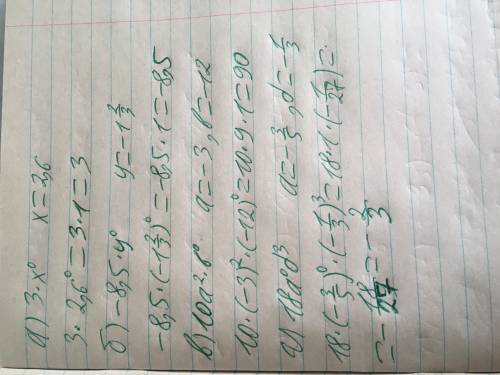 а) 3·x⁰ x=2,6
3·2,6⁰=3·1=3
б) -8,5·y⁰ y=-1⅔
-8,5·(-1⅔)⁰=-8,5·1=-8,5
в) 10a²·b⁰ a=-3, b=-12
10·(-3)²·(-12)⁰=10·9·1=90
г) 18a⁰d³ a=-⅔, d=-⅓
18·(-⅔)⁰·(-⅓)³=18·1·(-1/27)=
=-18/27=-⅔